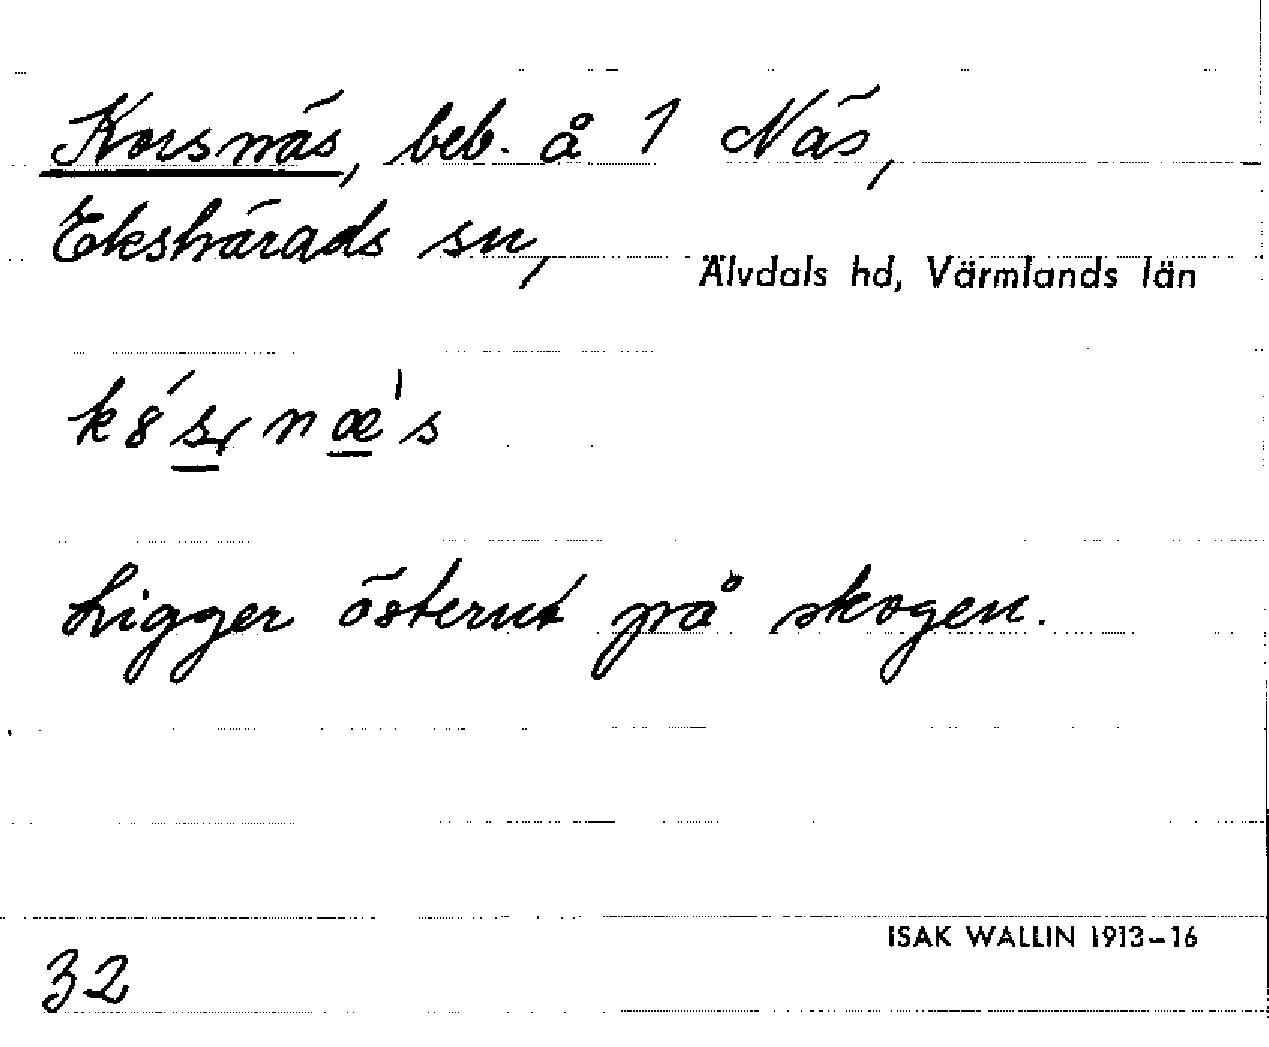 Korsnäs, beb. å 1 Näs,
Ekshärads sn,
Älvdals hd, Värmlands län
Ligger österut på skogen.
ISAK WALLIN 1913-16
32